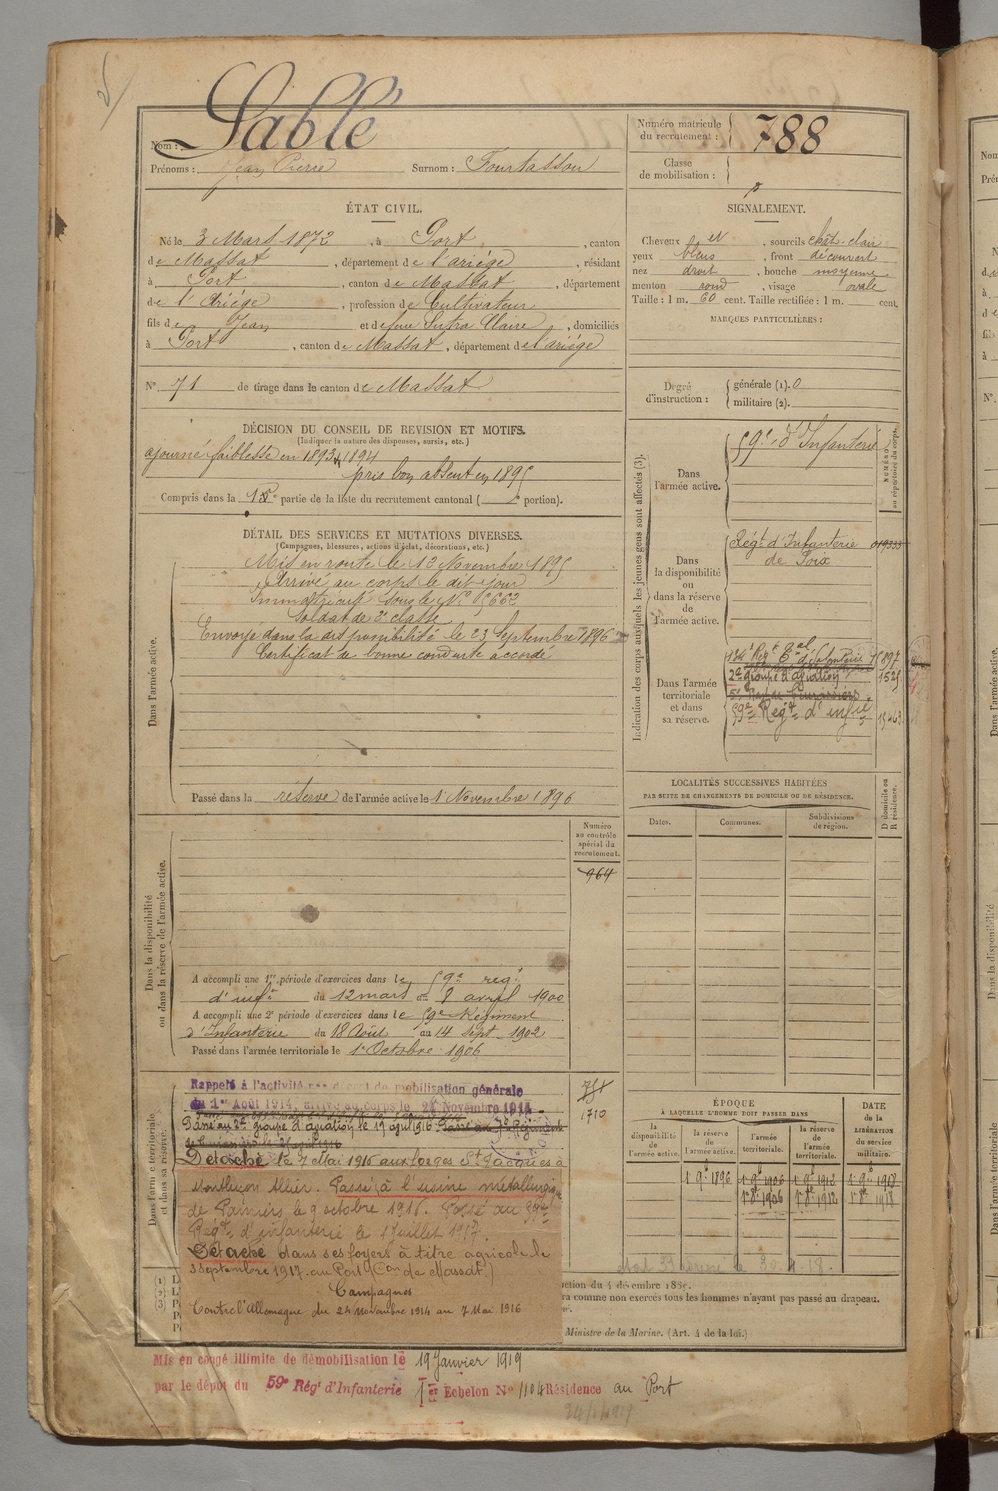 Nom : Sablé
Prénoms : Jean Pierre Surnom : Fourtassou
Numéro matricule du recrutement : 788
Classe de mobilisation :
ÉTAT CIVIL.
Né le 3 Mars 1872, à Port, canton
de Massat, département de l'ariége, résidant
à Port, canton de Massat, département
de l'Ariége, profession de Cultivateur
fils de Jean et de feue Sutra Claire, domiciliés
à Port, canton de Massat, département de l'ariége
N° 71 de tirage dans le canton de Massat
SIGNALEMENT.
Cheveux , sourcils chât-clair
yeux bleus, front découvert
nez droit, bouche moyenne
menton rond, visage ovale
Taille : 1 m. 60 cent. Taille rectifiée : 1 m. cent.
MARQUES PARTICULIÈRES :
Degré d'instruction : générale (1). 0
militaire (2).
DÉCISION DU CONSEIL DE REVISION ET MOTIFS.
(Indiquer la nature des dispenses, sursis, etc.)
ajourné faiblesse en 1893 & 1894
pris bon absent en 1895
Compris dans la partie de la liste du recrutement cantonal ( portion).
DÉTAIL DES SERVICES ET MUTATIONS DIVERSES.
(Campagnes, blessures, actions d'éclat, décorations, etc.)
Dans l'armée active.
Mis en route le 12 Novembre 1895
Arrivé au corps le dit jour
Immatriculé sous le N° 5662
Soldat de 2e classe
Envoyé dans la disponibilité le 23 Septembre 1896
Certificat de bonne conduite accordé
Passé dans la réserve de l'armée active le 1 Novembre 1896
Indication des corps auxquels les jeunes gens sont affectés (3).
NUMÉRO au répertoire du corps.
Dans l'armée active.
59e d'Infanterie
Dans la disponibilité ou dans la réserve de l'armée active.
Régt d'Infanterie 019333
de Foix
Dans l'armée territoriale et dans sa réserve.
134e Regt Eal d'Infanterie
2e groupe d'aviation 1525
59e Regt d'infie 15463
LOCALITÉS SUCCESSIVES HABITÉES
PAR SUITE DE CHANGEMENTS DE DOMICILE OU DE RÉSIDENCE.
Dates. Communes. Subdivisions de région. D domicile ou R résidence.
Dans la disponibilité ou dans la réserve de l'armée active.
Numéro au contrôle spécial du recrutement.
964
A accompli une 1re période d'exercices dans le 59e reg.
d'infie du 12 mars au 8 avril 1900
A accompli une 2e période d'exercices dans le 59e Régiment
d'Infanterie du 18 Août au 14 Sept. 1902
Passé dans l'armée territoriale le 1 Octobre 1906
Dans l'armée territoriale et dans sa réserve.
1710
Rappelé à l'activité par décret de mobilisation générale
du 1er Août 1914, arrivé au corps le 24 Novembre 1914
Passé au 2e groupe d'aviation le 17 avril 1916
Détaché le 7 Mai 1916 aux forges St Jacques à
Montluçon Allier. Passé à l'usine métallurgique
de Pamiers le 9 octobre 1916. Passé au 59e
Regt d'infanterie le 1 Juillet 1917.
Détaché dans ses foyers à titre agricole le
3 Septembre 1917 au Port (Con de Massat.)
Campagnes
Contre l'Allemagne du 24 Novembre 1914 au 7 Mai 1916
ÉPOQUE
À LAQUELLE L'HOMME DOIT PASSER DANS
la disponibilité de l'armée active.
la réserve de l'armée active.
l'armée territoriale.
la réserve de l'armée territoriale.
DATE de la LIBÉRATION du service militaire.
1 9e 1896 1 9e 1906 1 9e 1912 1 9e 1918
1 8e 1906 1 8e 1912 1 8e 1918
ction du 4 décembre 1889.
ra comme non exercés tous les hommes n'ayant pas passé au drapeau.
Ministre de la Marine. (Art. 4 de la loi.)
Mis en congé illimité de démobilisation le 19 Janvier 1919
par le dépôt du 59e Régt d'Infanterie 1er Echelon N° 1104 Résidence au Port